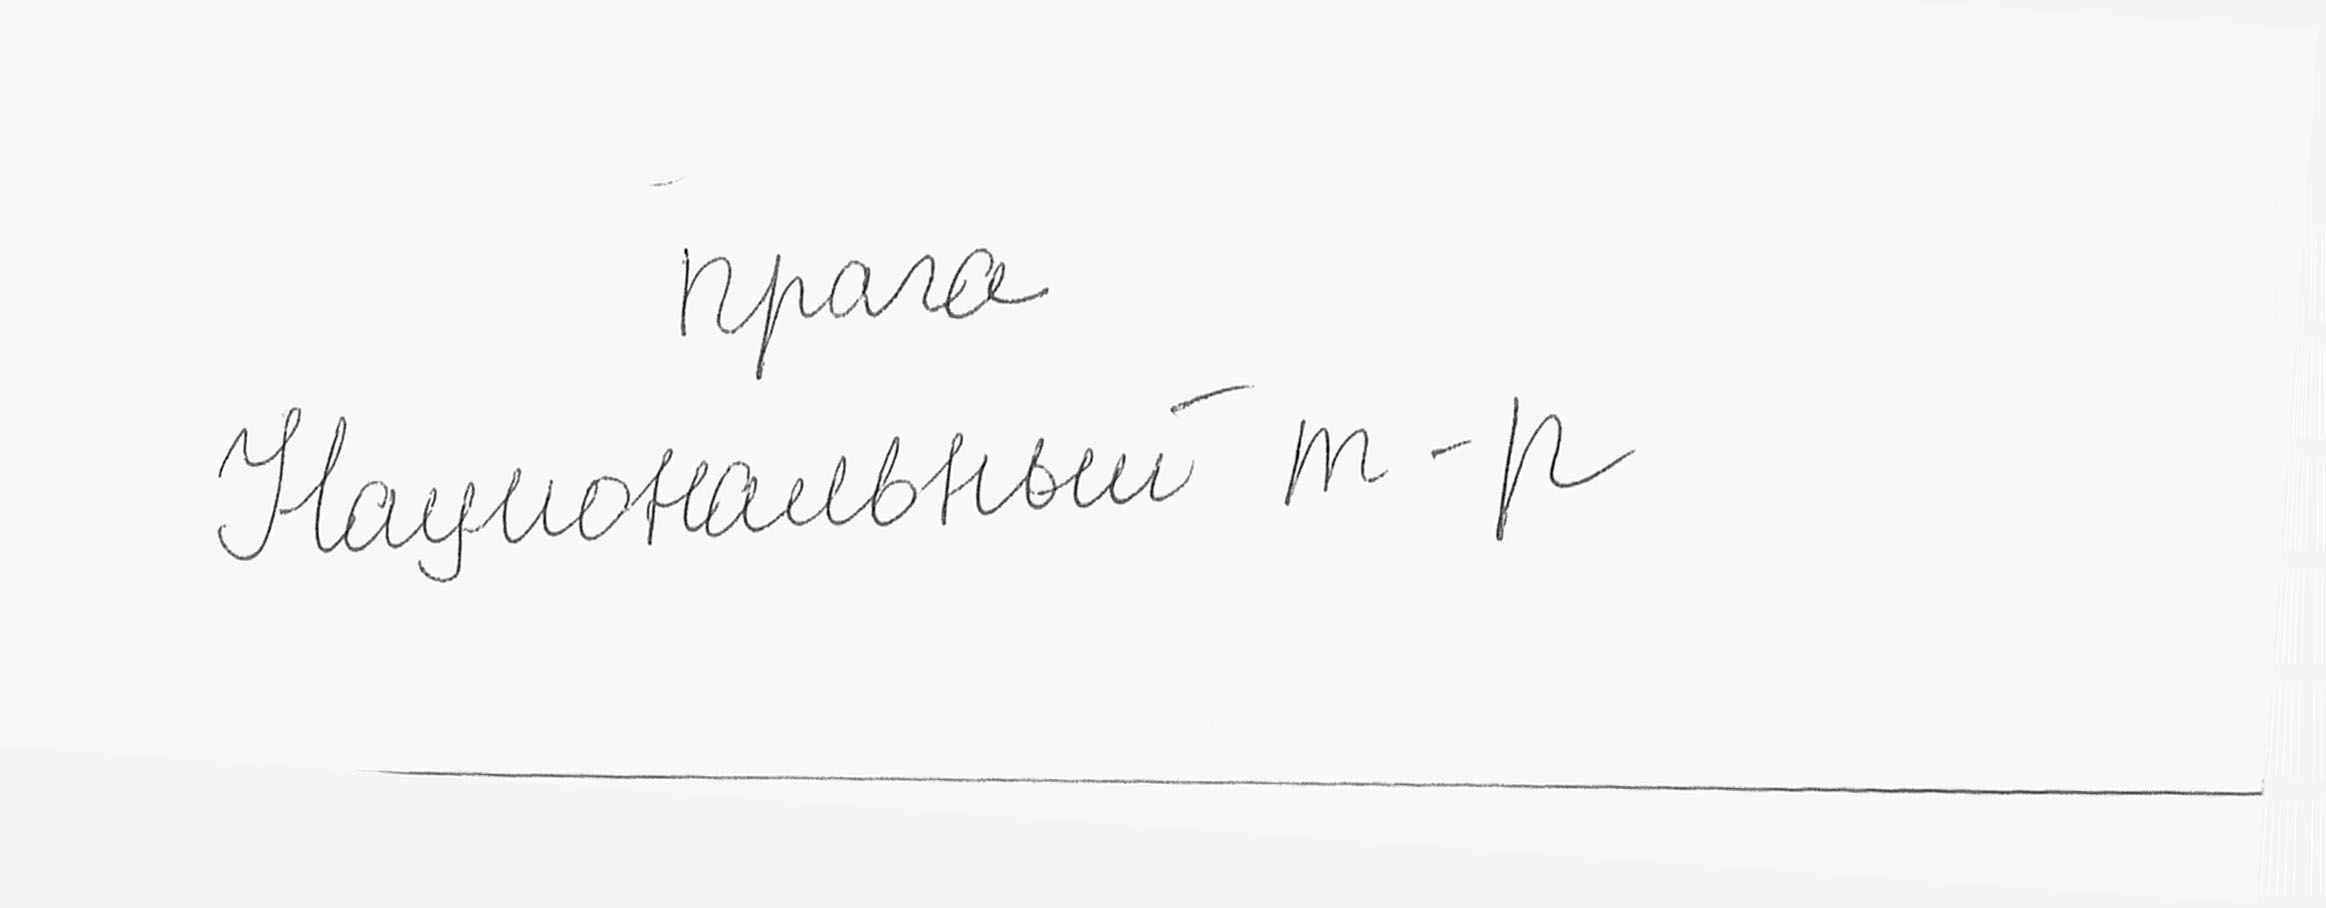 прага
Национальный т-р